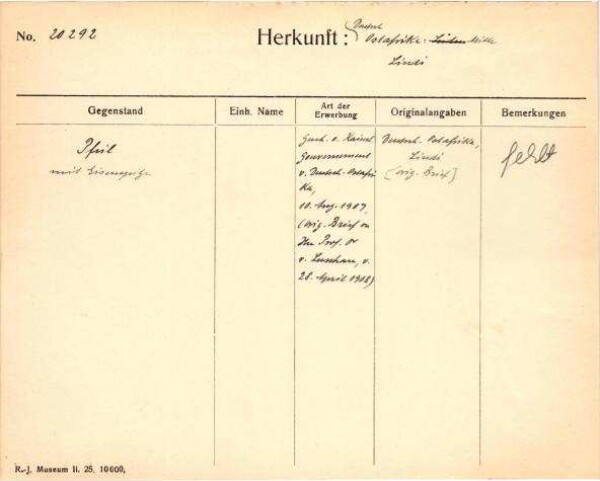 No. 20292
Herkunft: Deutsch
Ostafrika
Lindi
Gegenstand
Einh. Name
Art der
Erwerbung
Originalangaben
Bemerkungen
Pfeil
mit Eisenspitze
Gesch. v. Kaiserl
Gouvernement
v. Deutsch-Ostafri
ka,
10. Aug. 1907,
(orig. Brief an
Hrn Prof. Dr
v. Luschan, v.
28. April 1908)
Deutsch-Ostafrika,
Lindi
(orig. Brief)
fehlt
R.-J. Museum II. 25. 10000.